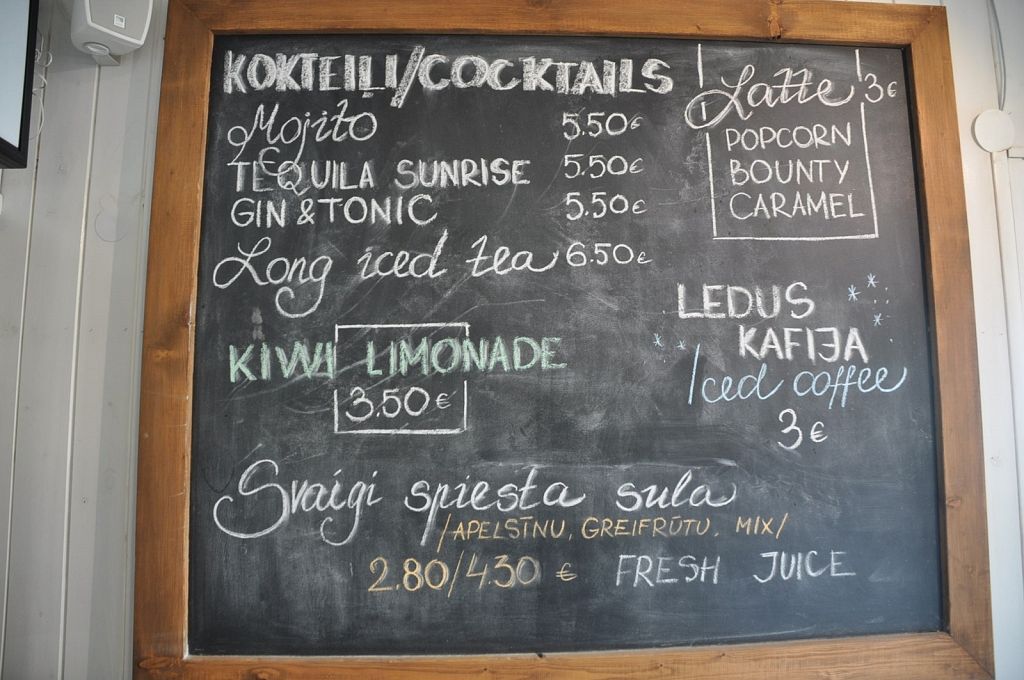 KOKTEIĻI/COCKTAILS
Mojito 5.50€
TEQUILA SUNRISE 5.50€
GIN & TONIC 5.50€
Long iced tea 6.50€
KIWI LIMONADE
3.50€
Latte 3€
POPCORN
BOUNTY
CARAMEL
LEDUS
KAFIJA
Iced coffee
3€
Svaigi spiesta sula
/APELSĪNU, GREIFRŪTU, MIX/
2.80/4.30 € FRESH JUICE